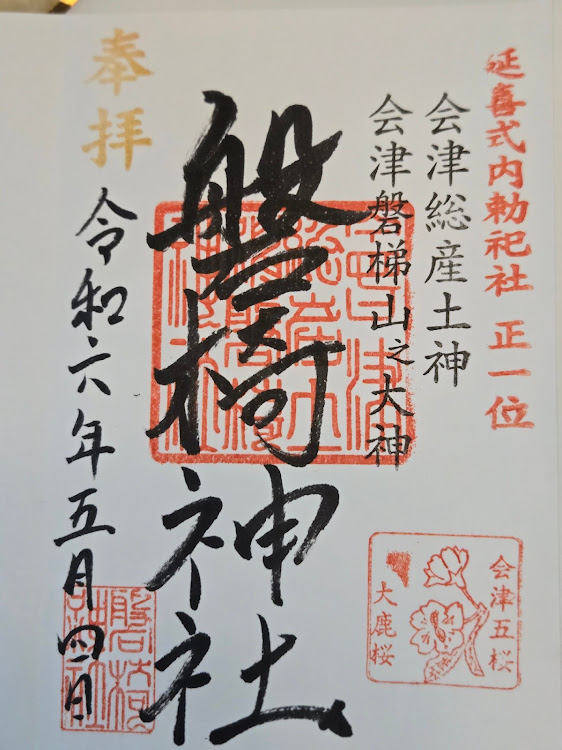 延喜式内勅祀社 正一位
会津総産土神
会津磐梯山之大神
磐椅神社
奉拝
令和六年五月四日
会津五桜
大鹿桜
磐椅
神社